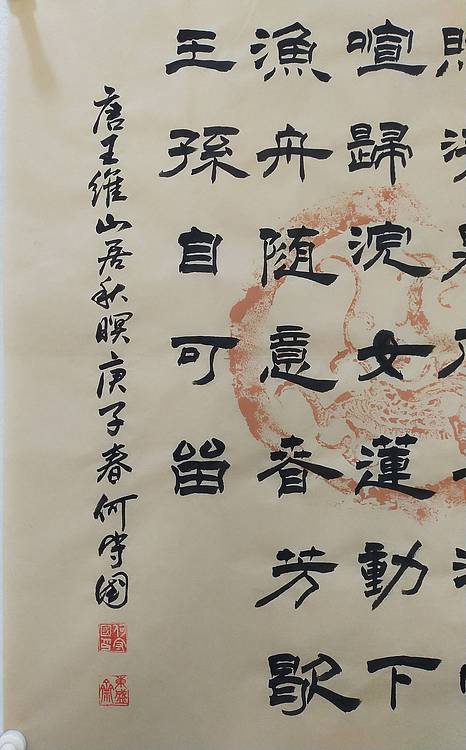 喧歸浣女蓮動下
漁舟隨意春芳歇
王孫自可留
唐王維山居秋暝庚子春何守國